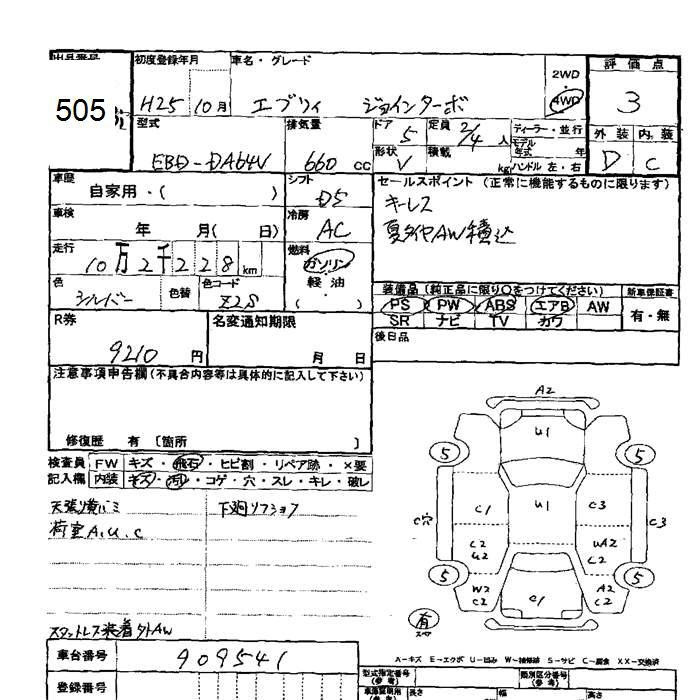 初度登録年月 車名・グレード 評価点
505 H25 10月 エブリィ ジョインターボ 2WD 4WD 3
型式 排気量 ドア 定員 ディーラー・並行 外装 内装
EBD-DA64V 660 CC 5 2/4人 モデル年式 年 D C
形状 V 積載 kg ハンドル 左・右
車歴 シフト セールスポイント (正常に機能するものに限ります)
自家用・( ) D5 キーレス
車検 冷房 夏タイヤAW積込
年 月( 日) AC
走行 燃料
10万2千228km ガソリン
色 色替 色コード 軽油
シルバー Z2S ( )
装備品(純正品に限り○をつけてください) 新車保証書
PS PW ABS エアB AW 有・無
SR ナビ TV カワ
R券 名変通知期限 後日品
9210円 月 日
注意事項申告欄(不具合内容等は具体的に記入して下さい)
修復歴 有 [箇所 ]
検査員 FW キズ・飛石・ヒビ割・リペア跡・×要
記入欄 内装 キズ・汚レ・コゲ・穴・スレ・キレ・破レ
下廻リフショク
荷室A.U.C
A2
U1
5 5
C穴 C1 U1 C3 C3
C2 U2 UA2 C2
5 5
W2 C2 A2 C2
C1
有
スペア
スタットレス装着外AW
A-キズ E-エクボ U-凹み W-補修跡 S-サビ C-腐食 XX-交換済
車台番号 909541
型式指定番号(参考) 類別区分番号(参考)
登録番号 長さ 幅 高さ